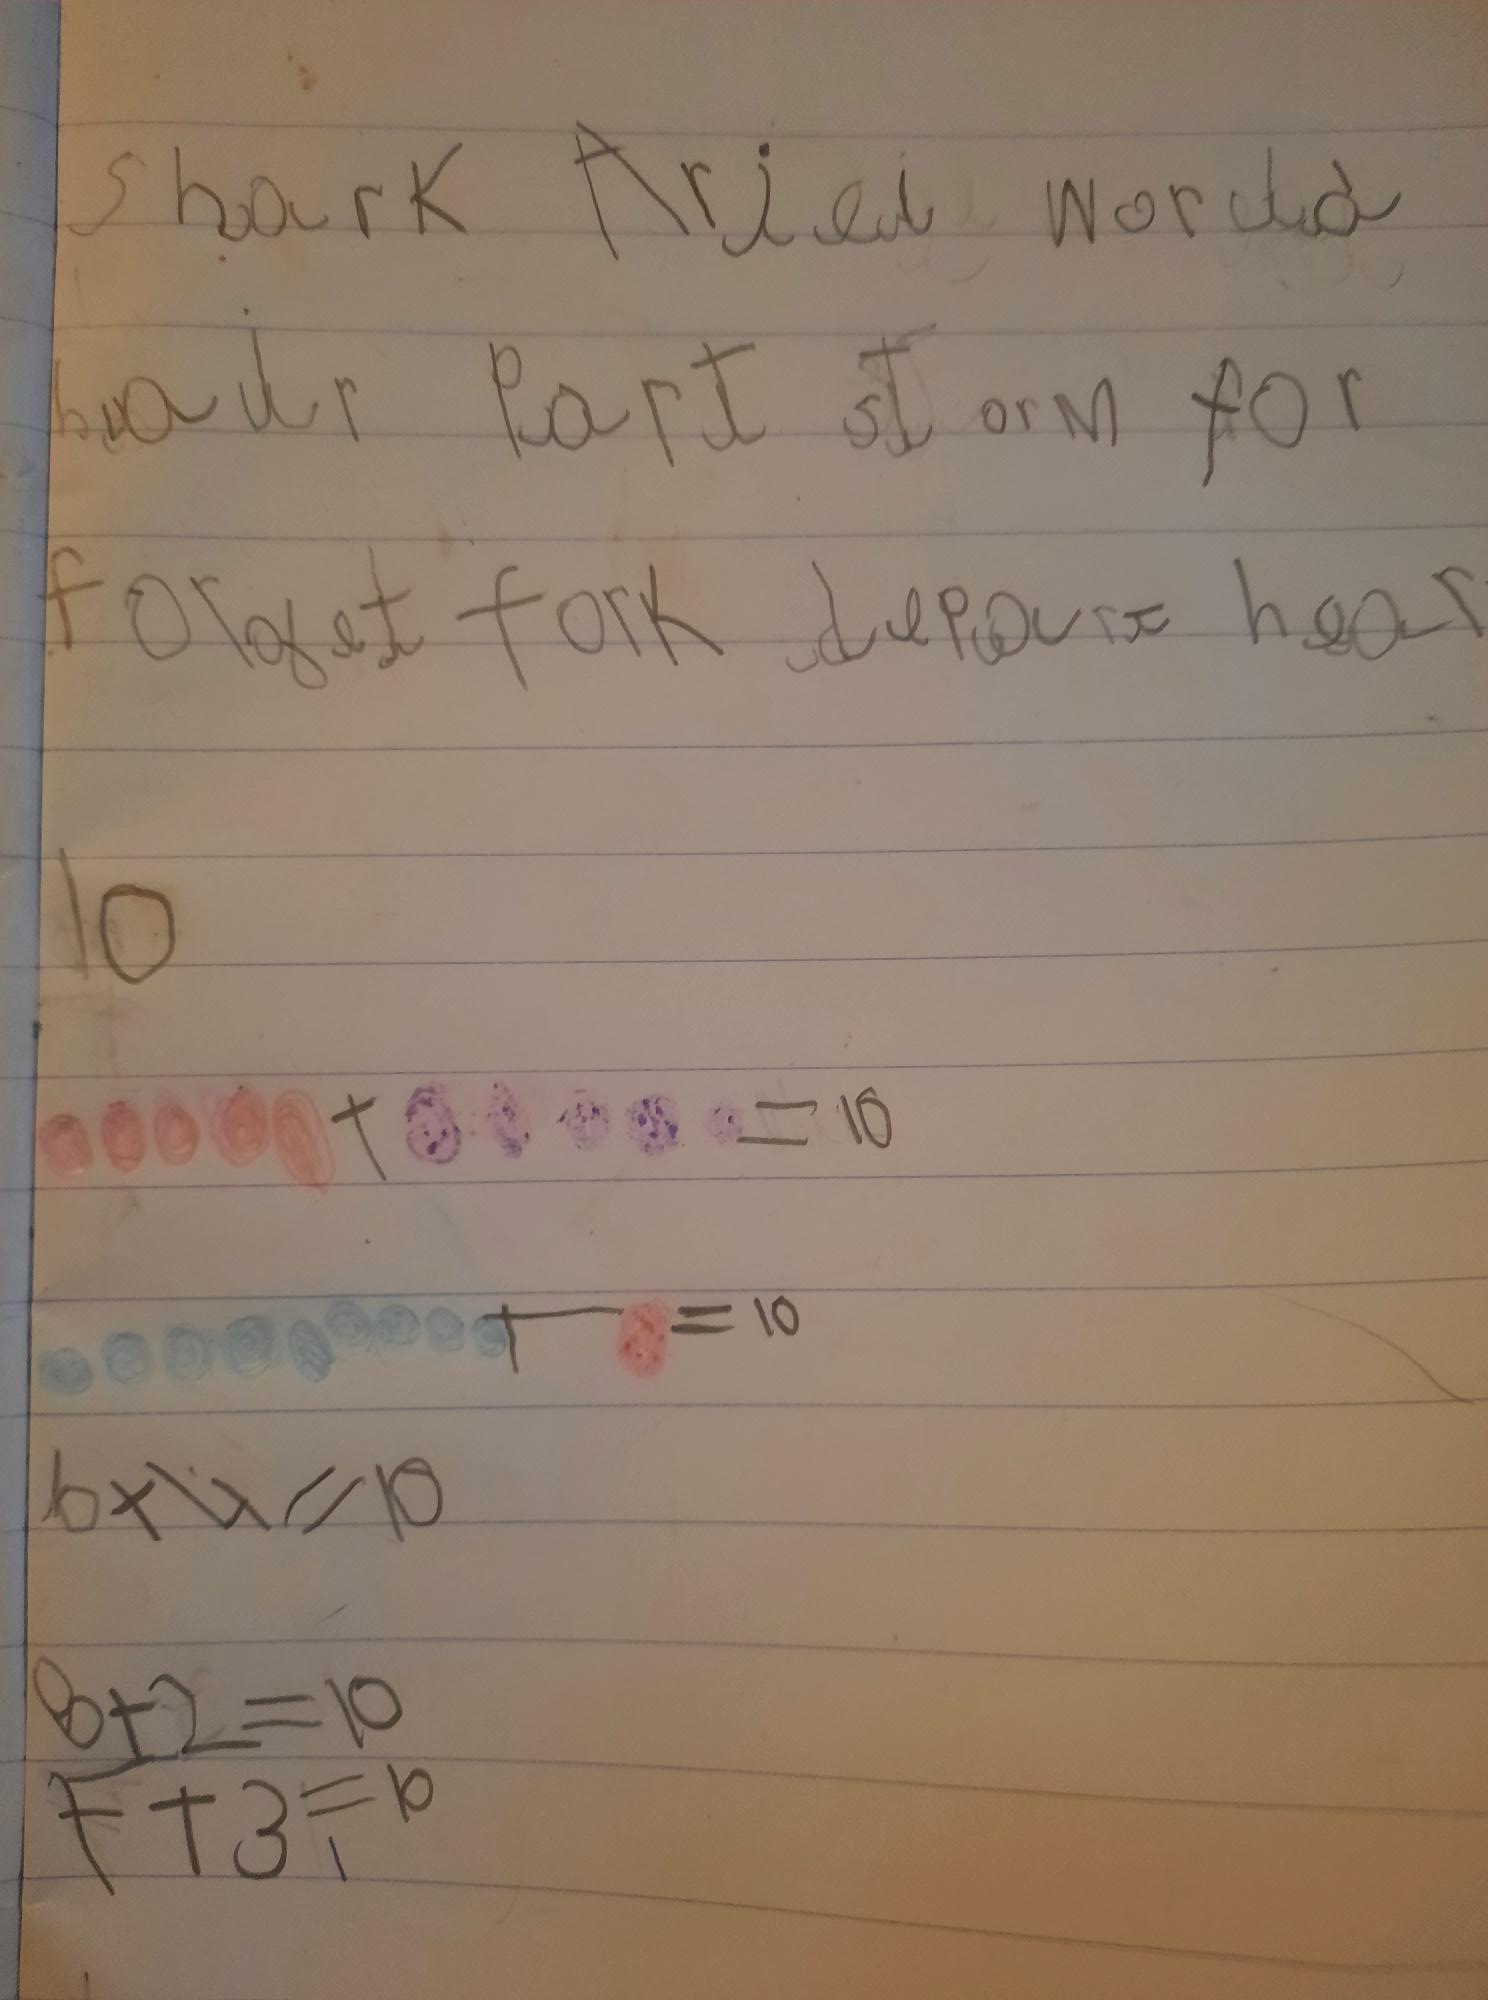 shark Ariel world
hair Part storm for
forget fork hear
10
+ = 10
+ = 10
6+4=10
8+2=10
7+3=10